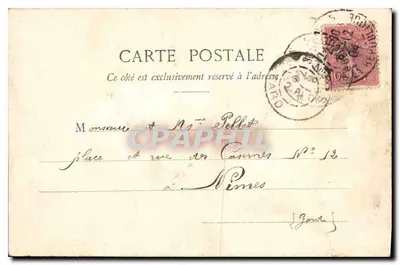 CARTE POSTALE
Ce côté est exclusivement réservé à l'adresse
GARD
Monsieur et Mme Pellet
CPAPHIL
place et rue des Casernes No 12
à Nîmes
(Gard)